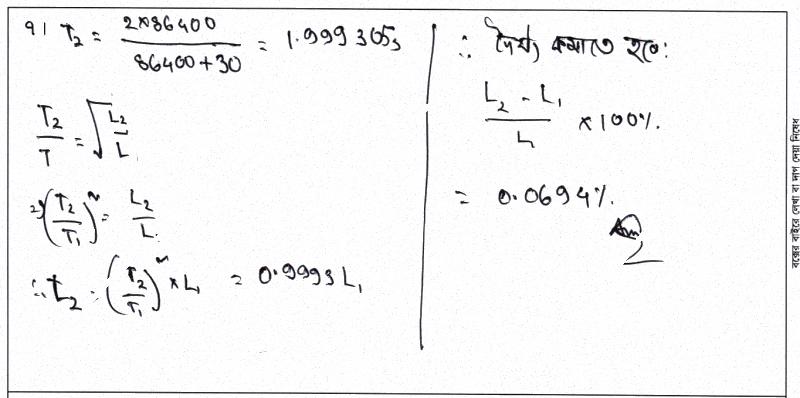 9। T₂ = 2×86400 / 86400+30 = 1.999305s
T₂/T = √L₂/L
⇒ (T₂/T₁)² = L₂/L.
∴ L₂ = (T₂/T₁)² × L₁ = 0.9993 L₁
∴ দৈর্ঘ্য কমাতে হবে:
L₂ - L₁ / L₁ × 100%.
= 0.0694%.
Ans
2
বক্সের বাইরে লেখা বা দাগ দেয়া নিষেধ